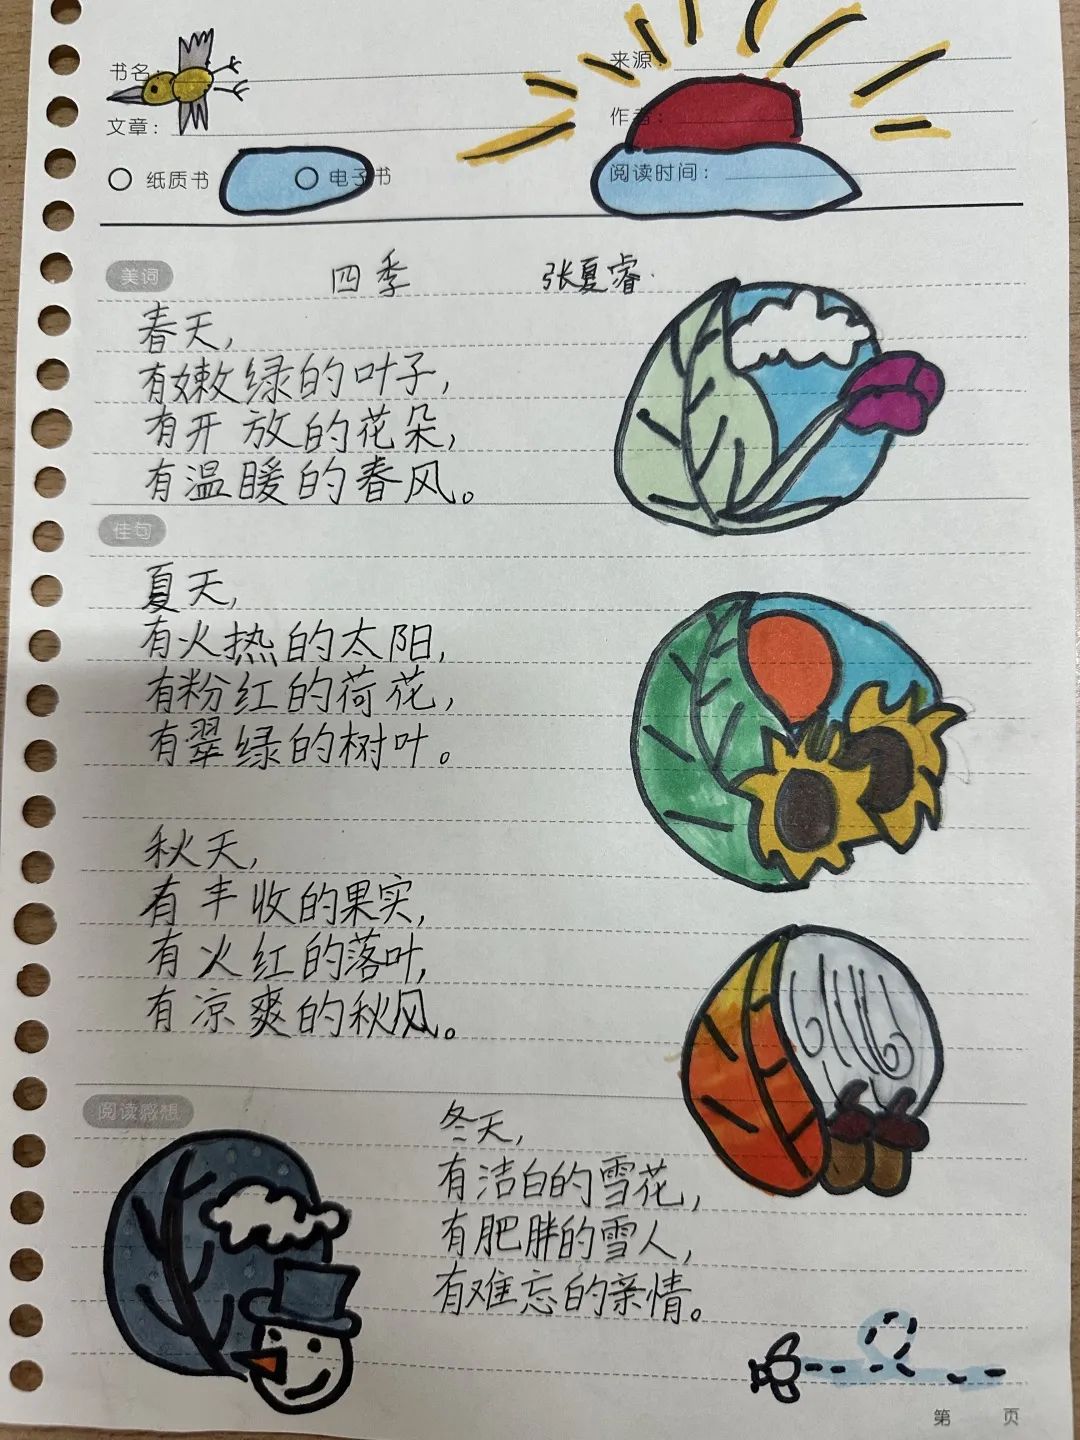 书名:
来源:
文章:
作者:
纸质书 电子书 阅读时间:
美词
四季 张夏睿
春天,
有嫩绿的叶子,
有开放的花朵,
有温暖的春风。
佳句
夏天,
有火热的太阳,
有粉红的荷花,
有翠绿的树叶。
秋天,
有丰收的果实,
有火红的落叶,
有凉爽的秋风。
阅读感想
冬天,
有洁白的雪花,
有肥胖的雪人,
有难忘的亲情。
第 页